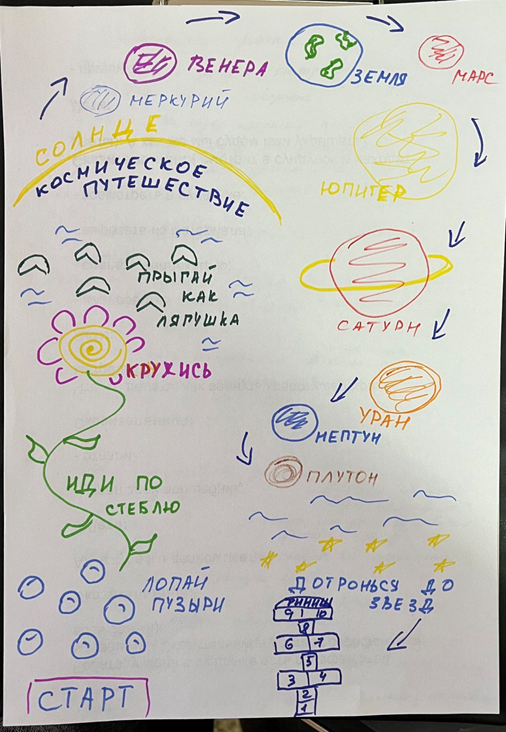 ВЕНЕРА
ЗЕМЛЯ
МАРС
МЕРКУРИЙ
СОЛНЦЕ
КОСМИЧЕСКОЕ
ПУТЕШЕСТВИЕ
ЮПИТЕР
ПРЫГАЙ
КАК
ЛЯГУШКА
САТУРН
КРУЖИСЬ
УРАН
НЕПТУН
ПЛУТОН
ИДИ ПО
СТЕБЛЮ
ЛОПАЙ
ПУЗЫРИ
ДОТРОНЬСЯ ДО
ЗВЕЗД
ФИНИШ
9 10
8
6 7
5
3 4
2
1
СТАРТ